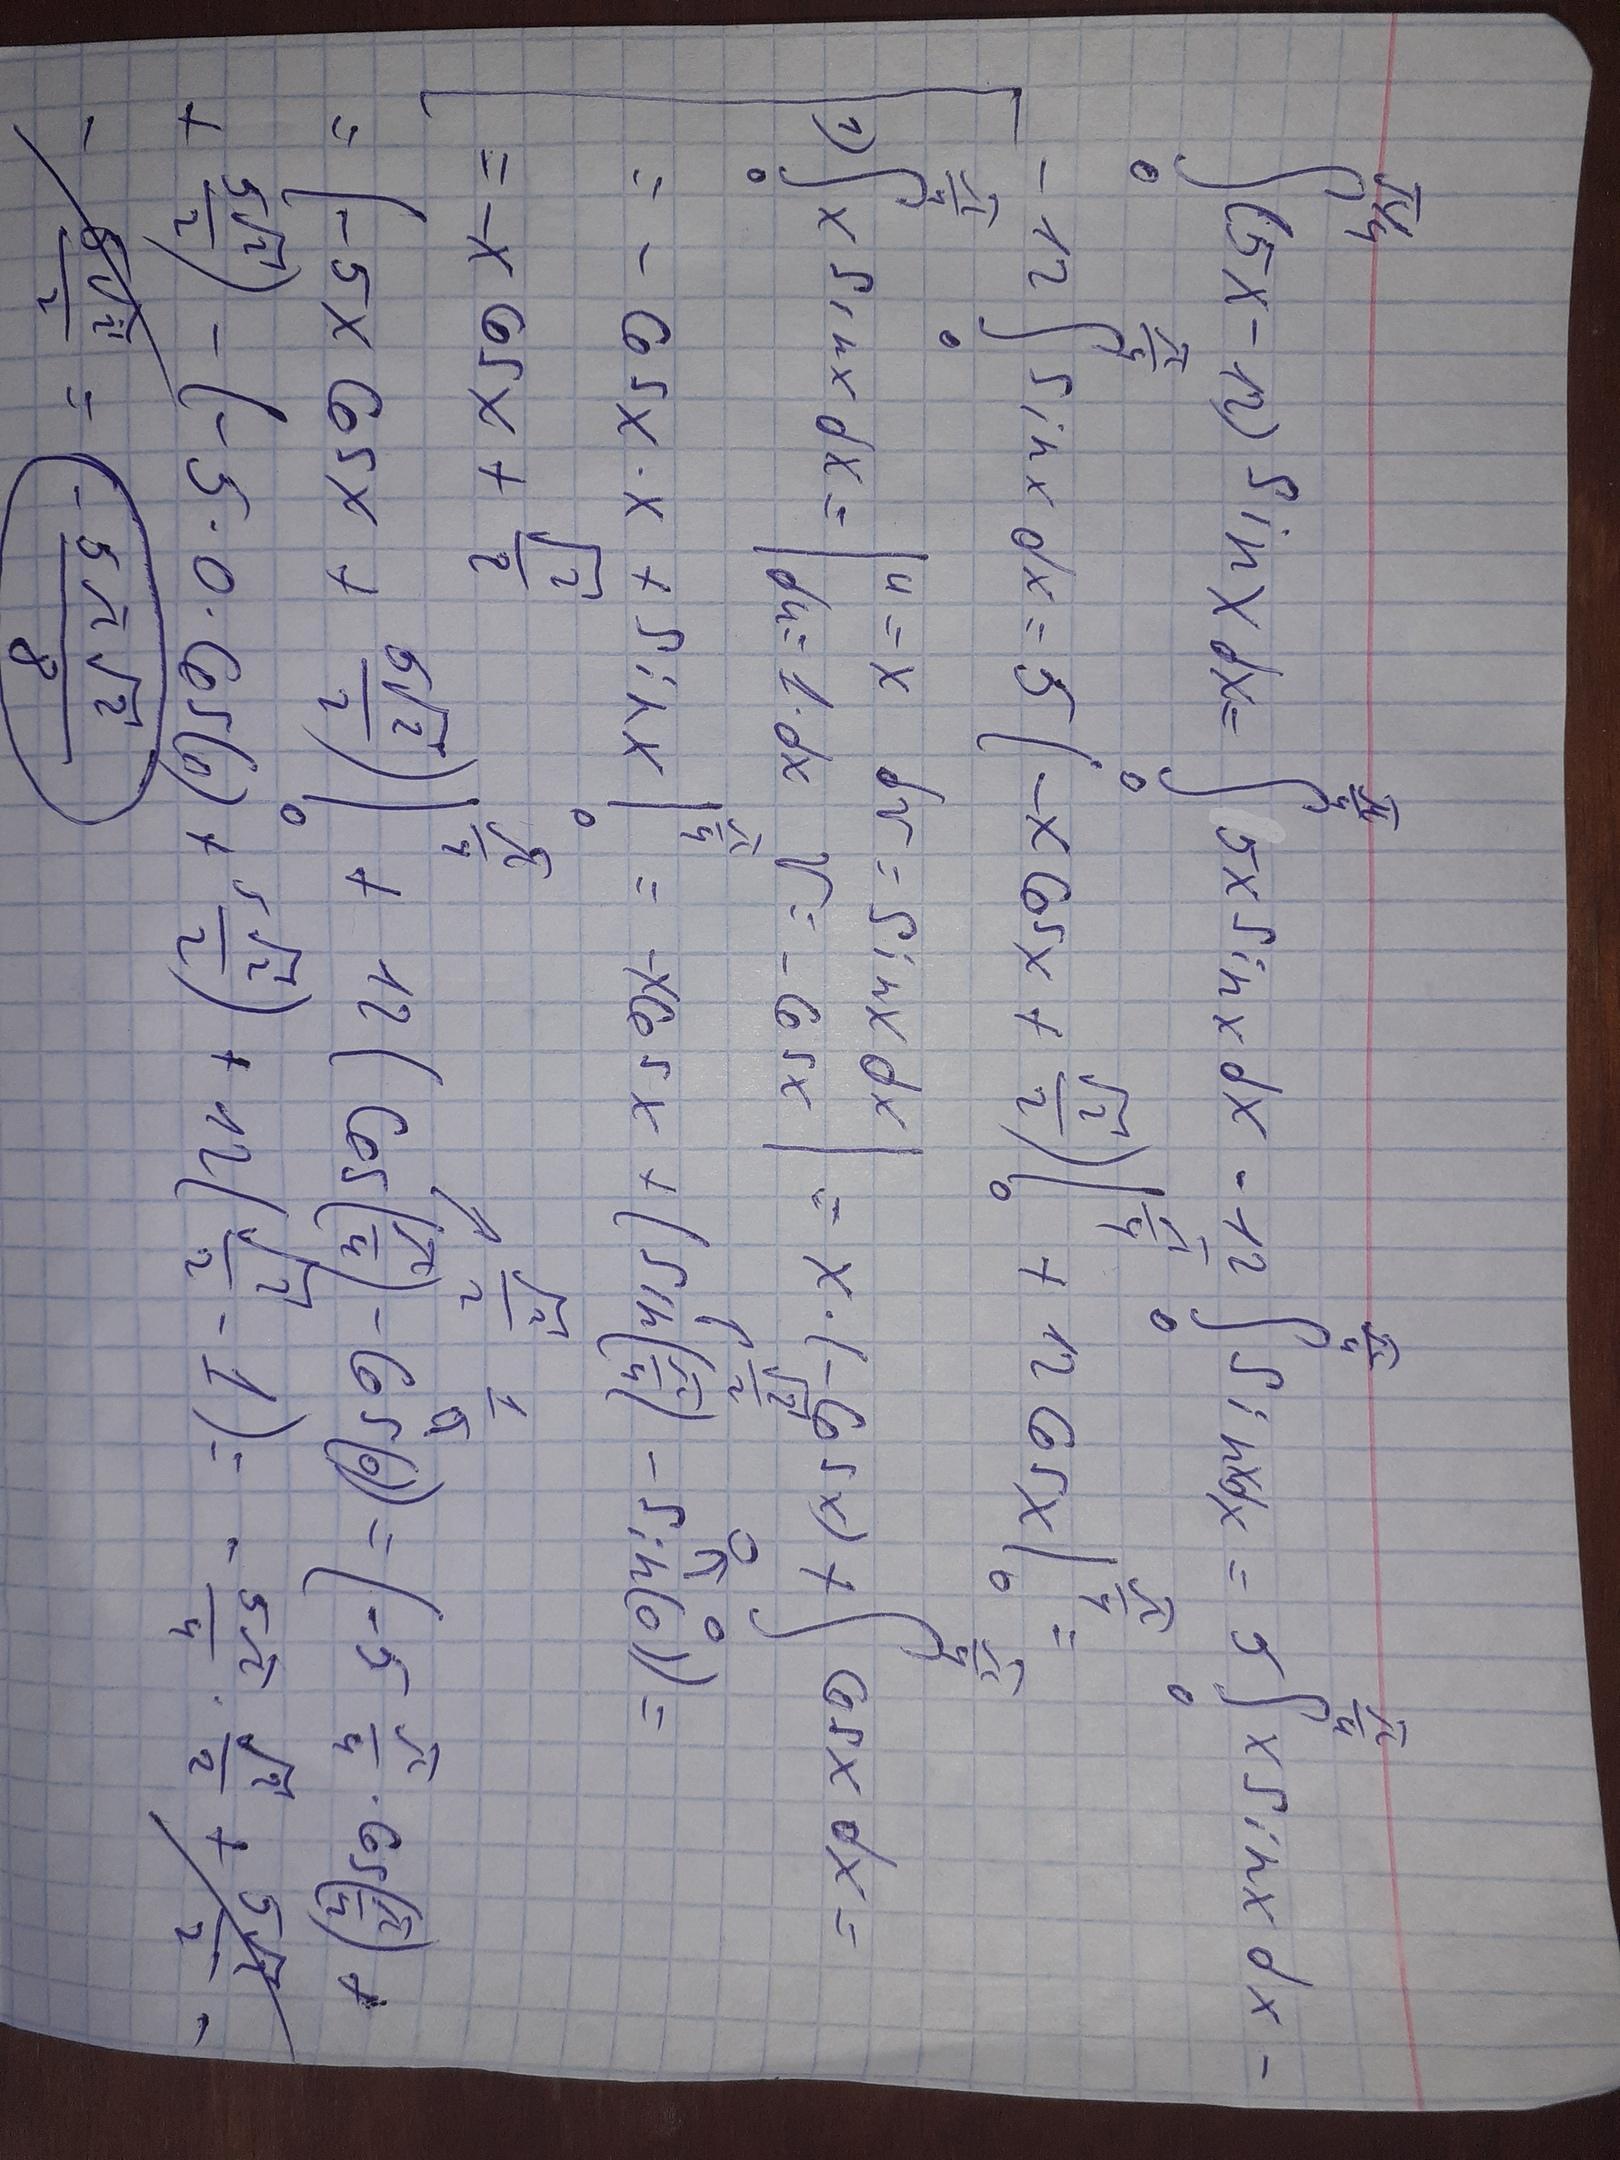 ∫₀^{π/4} (5x-12) sin x dx = ∫₀^{π/4} 5x sin x dx - 12 ∫₀^{π/4} sin x dx = 5 ∫₀^{π/4} x sin x dx -
- 12 ∫₀^{π/4} sin x dx = 5 (-x cos x + √2/2) |₀^{π/4} + 12 cos x |₀^{π/4} =
1) ∫₀^{π/4} x sin x dx = | u = x dv = sin x dx
du = 1·dx v = -cos x | = x·(-cos x) + ∫₀^{π/4} cos x dx =
= -cos x · x + sin x |₀^{π/4} = -x cos x + (sin(π/4) - sin(0)) =
√2/2 0
= -x cos x + √2/2
√2/2 1
= (-5x cos x + 5√2/2) |₀^{π/4} + 12 (cos(π/4) - cos(0)) = (-5 π/4 · cos(π/4) +
+ 5√2/2) - (-5·0·cos(0) + 5√2/2) + 12(√2/2 - 1) = - 5π/4 · √2/2 + 5√2/2 -
- 5√2/2 = - 5π√2/8